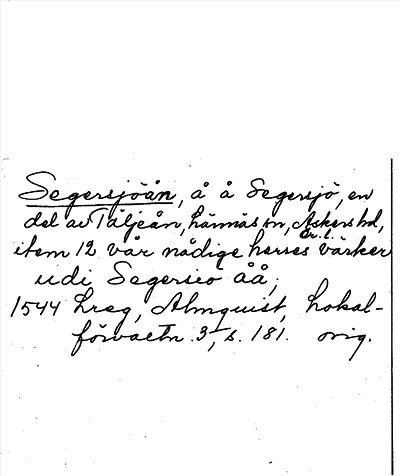 Segersjöån, å å Segersjö, en
del av Täljeån, Lännäs sn, Askers hd,
Ör. l.
item 12 vår nådige herres värker
udi Segersiö åå,
1544 Lreg, Almquist, Lokal-
förvaltn. 3, s. 181. orig.